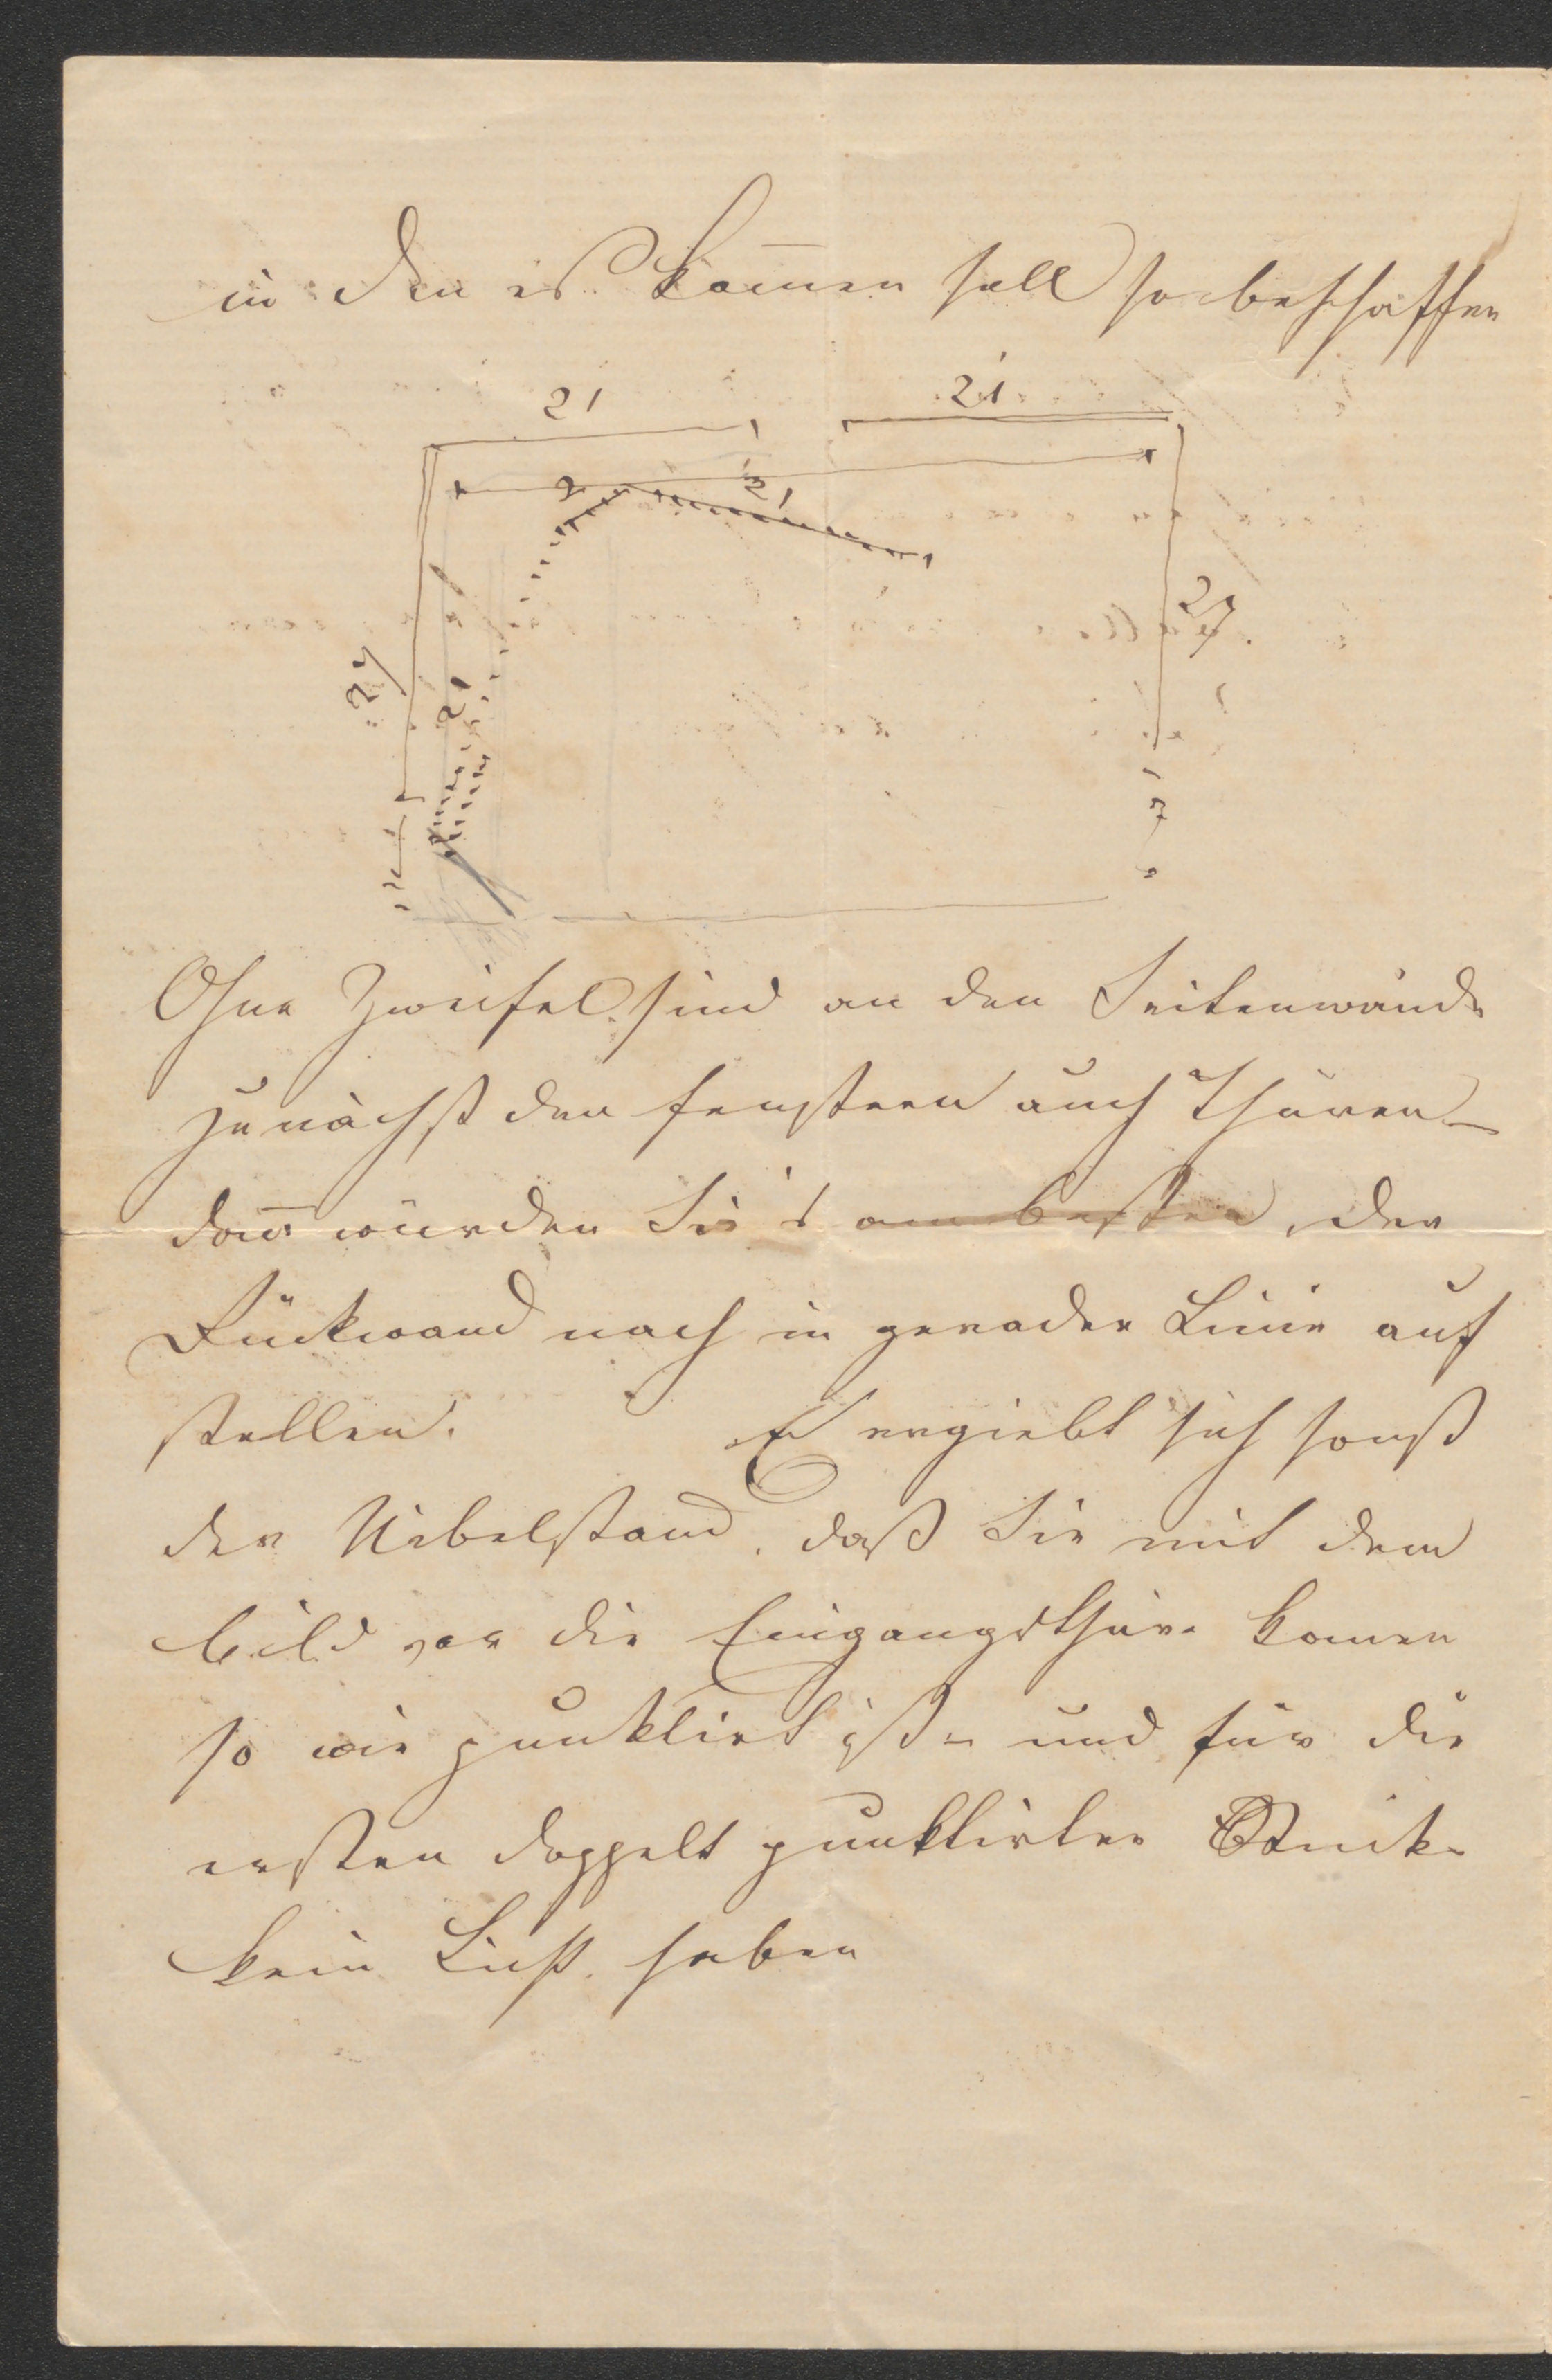 in den es kom̄en soll so beschaffen
21
21
2
21
27
27
21
7
Ohne Zweifel sind an den Seitenwände
zunächst den Fenstern auch Thüren –
dan̄ würden Sie's am besten, der
Rückwand nach in gerader Linie auf
stellen. Es ergiebt sich sonst
der Uebelstand, daß Sie mit dem
Bild vor die Eingangsthüre komen
so wie punktirt ist – und für die
ersten doppelt punktirten Stücke
kein Licht haben